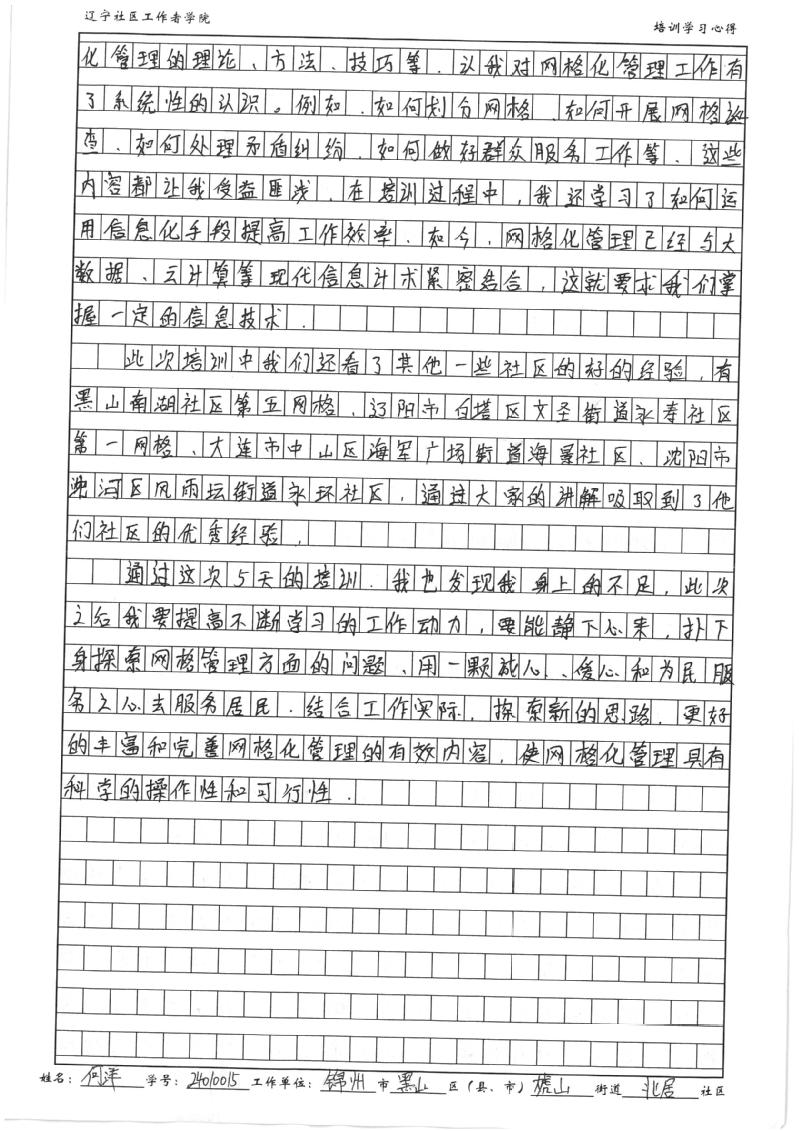 辽宁社区工作者学院 培训学习心得
化管理的理论、方法、技巧等，让我对网格化管理工作有
了系统性的认识。例如，如何划分网格，如何开展网格巡
查，如何处理矛盾纠纷，如何做好群众服务工作等，这些
内容都让我受益匪浅，在培训过程中，我还学习了如何运
用信息化手段提高工作效率，如今，网格化管理已经与大
数据、云计算等现代信息计术紧密结合，这就要求我们掌
握一定的信息技术.
此次培训中我们还看了其他一些社区的好的经验，有
黑山南湖社区第五网格、辽阳市白塔区文圣街道永寿社区
第一网格、大连市中山区海军广场街道海景社区、沈阳市
沈河区风雨坛街道永环社区，通过大家的讲解吸取到了他
们社区的优秀经验.
通过这次5天的培训，我也发现我身上的不足，此次
之后我要提高不断学习的工作动力，要能静下心来，扑下
身探索网格管理方面的问题、用一颗诚心、爱心和为民服
务之心去服务居民.结合工作实际，探索新的思路，更好
的丰富和完善网格化管理的有效内容，使网格化管理具有
科学的操作性和可行性.
姓名：何洋 学号：24010015 工作单位：锦州市黑山区（县、市）虎山街道北居社区